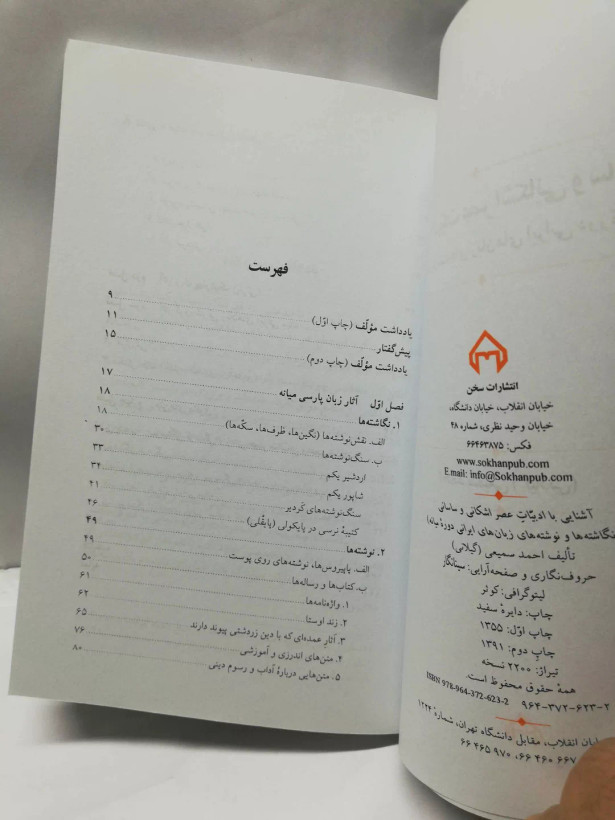 انتشارات سخن
خیابان انقلاب، خیابان دانشگاه،
خیابان وحید نظری، شماره ۴۸
فکس: ۶۶۴۶۳۸۷۵
www.sokhanpub.com
E.mail: info@Sokhanpub.com
آشنایی با ادبیّاتِ عصر اشکانی و ساسانی
نگاشته‌ها و نوشته‌های زبان‌های ایرانی دورهٔ میانه)
تألیف احمد سمیعی (گیلانی)
حروف‌نگاری و صفحه‌آرایی: سینانگار
لیتوگرافی: کوثر
چاپ: دایرهٔ سفید
چاپ اوّل: ۱۳۵۵
چاپ دوم: ۱۳۹۱
تیراژ: ۲۲۰۰ نسخه
همهٔ حقوق محفوظ است.
ISBN 978-964-372-623-2 ۹۶۴-۳۷۲-۶۲۳-۲
یابان انقلاب، مقابل دانشگاه تهران، شمارهٔ ۱۲۲۴
۶۶۷ ۶۶ ۴۶۰ ،۶۶ ۴۶۵ ۹۷۰
فهرست
یادداشت مؤلّف (چاپ اوّل) ۹
پیش‌گفتار ۱۱
یادداشت مؤلّف (چاپ دوم) ۱۵
فصل اوّل آثار زبان پارسی میانه ۱۷
۱. نگاشته‌ها ۱۸
الف. نقش‌نوشته‌ها (نگین‌ها، ظرف‌ها، سکّه‌ها) ۱۸
ب. سنگ‌نوشته‌ها ۳۰
اردشیر یکم ۳۳
شاپور یکم ۳۴
سنگ‌نوشته‌های کَردیر ۴۱
کتیبهٔ نرسی در پایکولی (پایقُلی) ۴۶
۲. نوشته‌ها ۴۹
الف. پاپیروس‌ها، نوشته‌های روی پوست ۴۹
ب. کتاب‌ها و رساله‌ها ۵۰
۱. واژه‌نامه‌ها ۶۱
۲. زند اوستا ۶۲
۳. آثارِ عمده‌ای که با دین زردشتی پیوند دارند ۶۵
۴. متن‌های اندرزی و آموزشی ۷۶
۵. متن‌هایی دربارهٔ آداب و رسوم دینی ۸۰